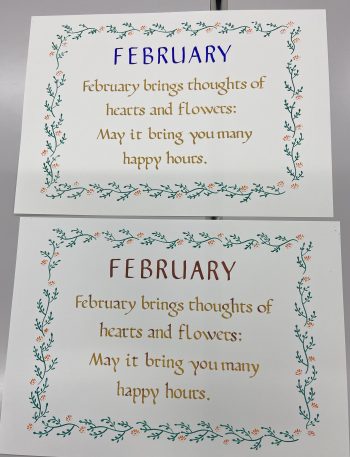 FEBRUARY
February brings thoughts of
hearts and flowers:
May it bring you many
happy hours.
FEBRUARY
February brings thoughts of
hearts and flowers:
May it bring you many
happy hours.